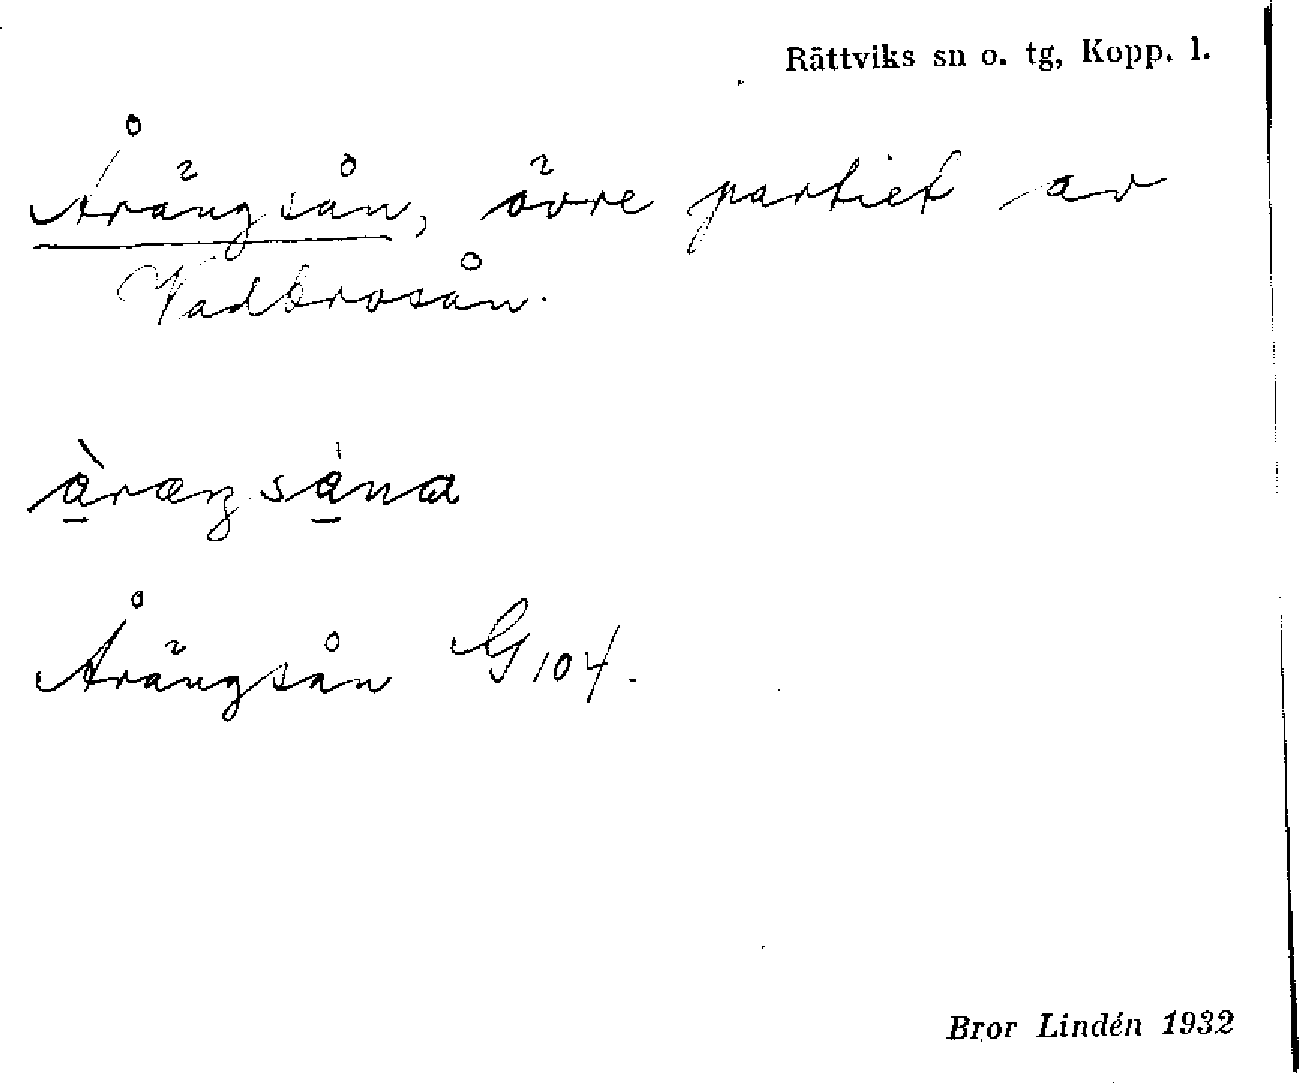 Rättviks sn o. tg, Kopp. l.
Årängsån, övre partiet av
Vadbrosån.
å̠̀ræŋså̠̀na
Årängsån G104.
Bror Lindén 1932